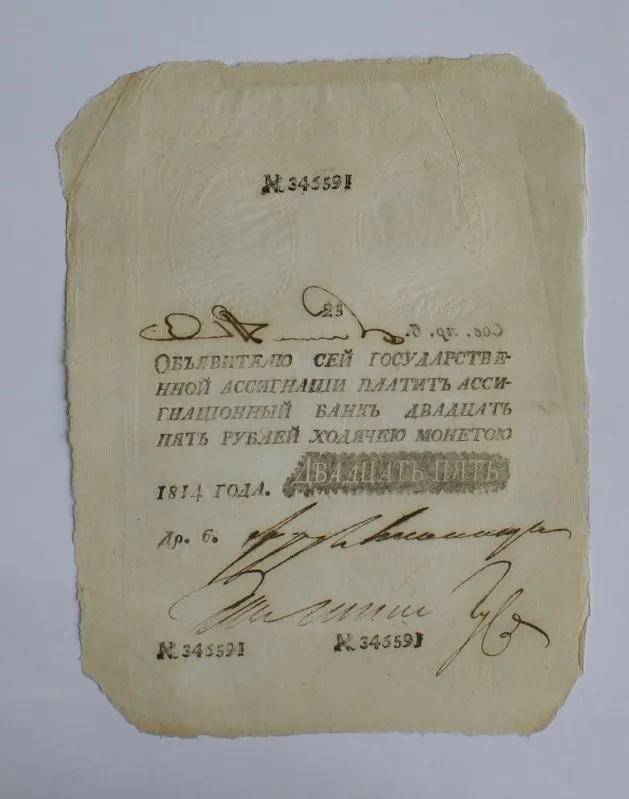 № 346591
25
Сов. пр. б.
ОБЪЯВИТЕЛЮ СЕЙ ГОСУДАРСТВЕ-
ННОЙ АССИГНАЦІИ ПЛАТИТЪ АССИ-
ГНАЦІОННЫЙ БАНКЪ ДВАДЦАТЬ
ПЯТЬ РУБЛЕЙ ХОДЯЧЕЮ МОНЕТОЮ
1814 ГОДА. ДВАДЦАТЬ ПЯТЬ
Др. б.
№ 346591 № 346591